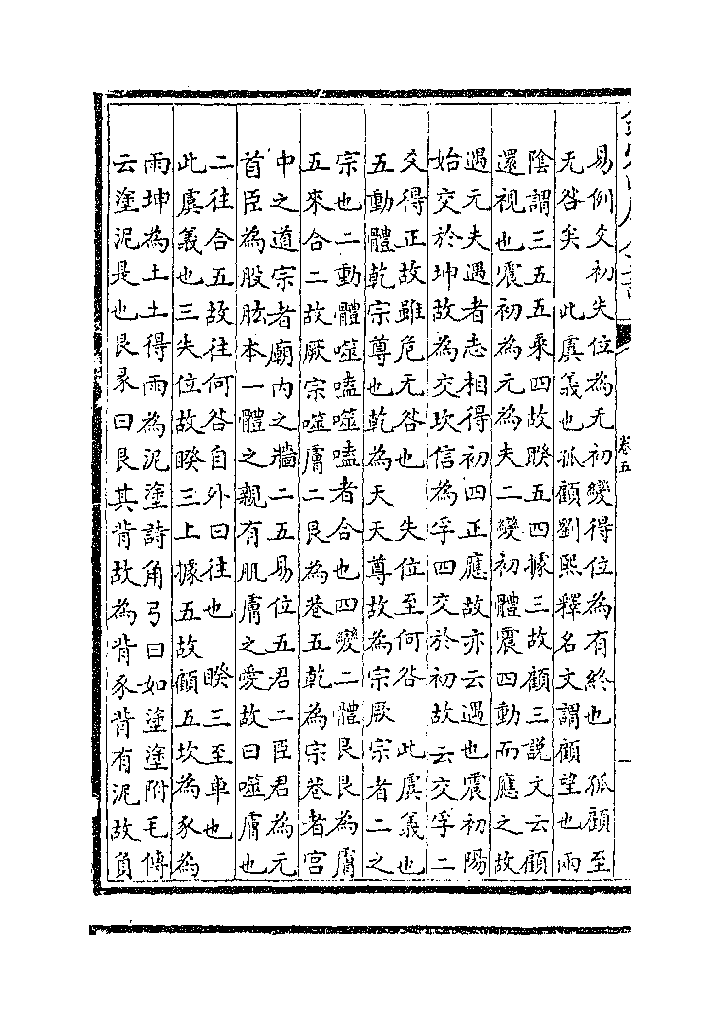 易例爻初失位為无初變得位為有終也　孤顧至
无咎矣　此虞義也孤顧劉熙釋名文謂顧望也兩
陰謂三五五乘四故睽五四據三故顧三說文云顧
還視也震初為元為夫二變初體震四動而應之故
遇元夫遇者志相得初四正應故亦云遇也震初陽
始交於坤故為交坎信為孚四交於初故云交孚二
爻得正故雖危无咎也　失位至何咎　此虞義也
五動體乾宗尊也乾為天天尊故為宗厥宗者二之
宗也二動體噬嗑噬嗑者合也四變二體艮艮為膚
五來合二故厥宗噬膚二艮為巷五乾為宗巷者宮
中之道宗者廟内之牆二五易位五君二臣君為元
首臣為股肱本一體之親有肌膚之愛故曰噬膚也
二往合五故往何咎自外曰往也　睽三至車也
此虞義也三失位故睽三上據五故顧五坎為豕為
雨坤為土土得雨為泥塗詩角弓曰如塗塗附毛傳
云塗泥是也艮彖曰艮其背故為背豕背有泥故負
卷五